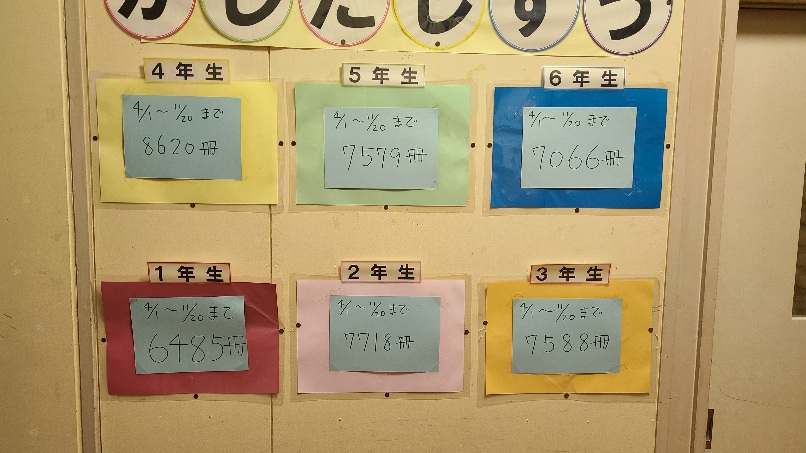 かしだしすう
4年生
4/1～11/20まで
8620冊
5年生
4/1～11/20まで
7579冊
6年生
4/1～11/20まで
7066冊
1年生
4/1～11/20まで
6485冊
2年生
4/1～11/20まで
7718冊
3年生
4/1～11/20まで
7588冊